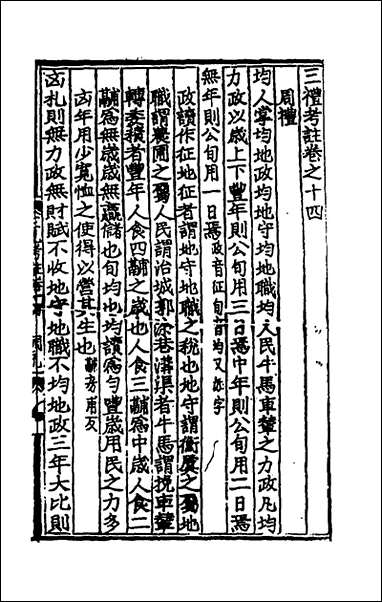 三禮考註卷之十四
周禮
均人掌均地政均地守均地職均人民牛馬車輦之力政凡均
力政以歲上下豐年則公旬用三日焉中年則公旬用二日焉
無年則公旬用一日焉政音征旬音均又如字
政讀作征地征者謂地守地職之稅也地守謂衡虞之屬地
職謂農圃之屬人民謂治城郭涂巷溝渠者牛馬謂挽車輦
轉委積者豐年人食四鬴之歲也人食三鬴爲中歲人食二
鬴爲無歲歲無贏儲也旬均也均讀爲勻豐歲用民之力多
凶年用少寬恤之使得以營其生也鬴音甫反
凶札則無力政無財賦不收地守地職不均地政三年大比則